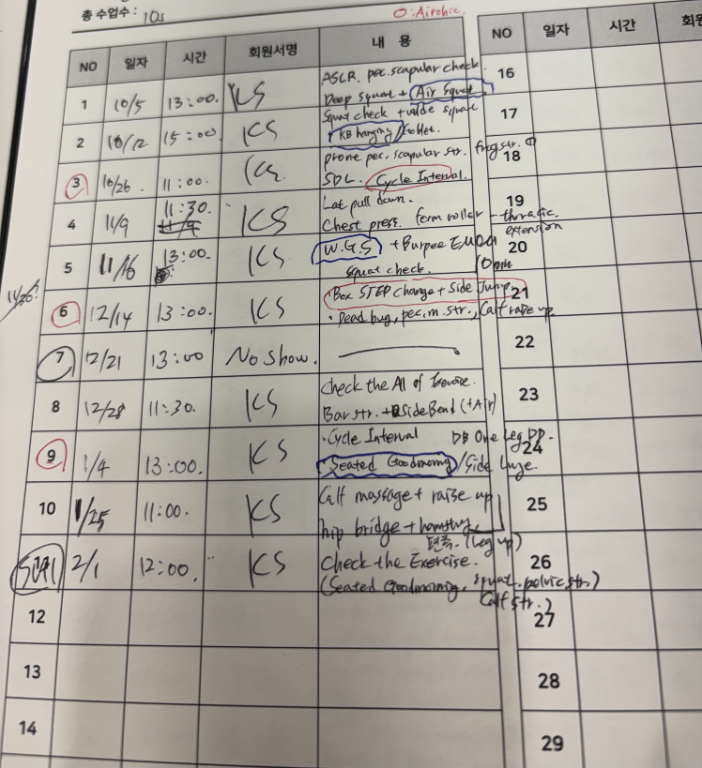 총 수업수 : 10s
O : Airobic.
NO 일자 시간 회원서명 내 용
NO 일자 시간 회원
1 10/5 13:00. KS ASLR. pec. scapular check.
Deep squat + Air Squat
2 10/12 15:00 KS Squat check + wide squat
KB hanging / Goblet.
3 10/26. 11:00. KS prone pec. scapular str. frog str.
SDL. Cycle Interval.
4 11/9 11:30. KS Lat pull down.
Chest press. form roller - thoracic extension
5 11/16 13:00 KS W.G.S + Burpee EMOM 10min
squat check.
11/30?
6 12/14 13:00. KS · Box STEP change + Side Jump
· Dead bug, pec.m. str., Calf raise up
7 12/21 13:00 No show.
8 12/28 11:30. KS Check the All of Exercise.
Bar str. + Side Bend (+Air)
9 1/4 13:00. KS · Cycle Interval DB One Leg DD.
Seated Goodmornig / Side lunge.
10 1/25 11:00. KS Calf massage + raise up
hip bridge + hamstring
(leg up)
2/1 12:00. KS Check the Exercise.
(Seated Goodmornig, squat. pelvic str.)
Calf str.)
12
13
14
16
17
18
19
20
21
22
23
24
25
26
27
28
29